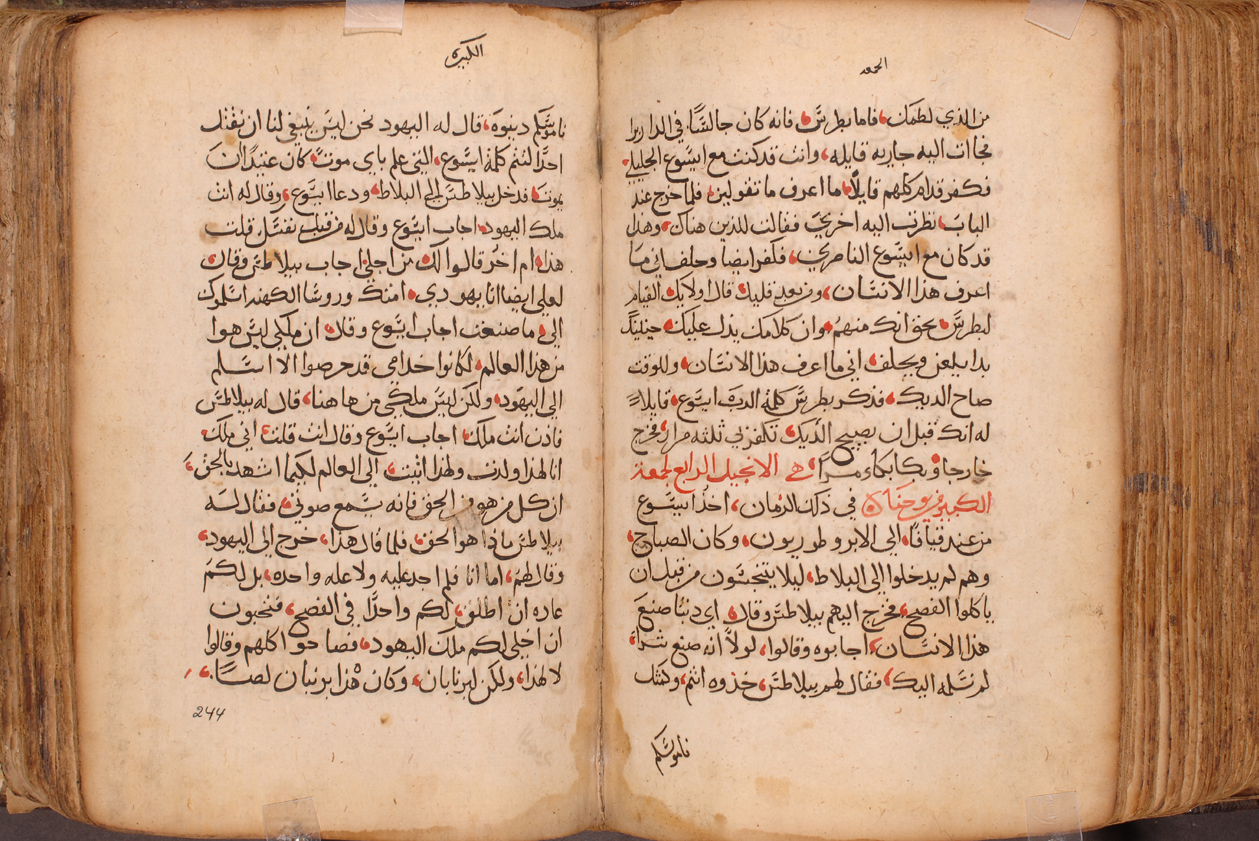 الجمعه
من الذي لطمك، فاما بطرس فانه كان جالسًا في الدار برا
فجاات اليه جاريه قايله، وانت قد كنت مع ايسوع الجليلي
فكفر قدام كلهم قايلًا، ما اعرف ما تقولين، فلما خرج عند
الباب نظرت اليه اخرى فقالت للذين هناك، وهذا
قد كان مع ايسوع الناصري، فكفر ايضا وحلف اني ما
اعرف هذا الانسان، ومن بعد قليل قال اوليك القيام
لبطرس بحق انك منهم، وان كلامك يدل عليك، حينيذ
بدا يلعن ويحلف، اني ما اعرف هذا الانسان، وللوقت
صاح الديك، فذكر بطرس كلمة الرب ايسوع، قايلًا
له انك قبل ان يصيح الديك تكفر بي ثلثه مرار، فخرج
خارجا وبكا بكاء مرا، هي الانجيل الرابع لجمعة
الكبيره من يوحنا في ذلك الزمان، اخدا يسوع
من عند قيافا، الى الابروطوريون، وكان الصباح،
وهم لم يدخلوا الى البلاط، ليلا يتنجسون من قبل ان
ياكلوا الفصح، فخرج اليهم بيلاطس وقال، اي دنبا صنع
هذا الانسان، اجابوه وقالوا، لولا انه صنع شرا،
لم نسلمه اليك، فقال لهم بيلاطس، خذوه انتم، وكمثل
ناموسكم
الكبيره
ناموسكم دينوه، قال له اليهود نحن ليس ينبغي لنا ان نقتل
احدًا لتتم كلمة ايسوع، التي علم باي موت، كان عتيدًا ان
يموت، فدخل بيلاطس الى البلاط، ودعا ايسوع، وقال له انت
ملك اليهود، اجاب ايسوع وقال له من قبل نفسك قلت
هذا، ام اخر قالوا لك من اجلي، اجاب بيلاطس وقال،
لعلي ايضا انا يهودي، امتك وروسا الكهنه اسلموك
الي، ما صنعت اجاب ايسوع وقال، ان ملكي ليس هوا
من هذا العالم، لكانوا خدامي قد حرصوا الا اسلم
الى اليهود، ولكن ليس ملكي من ها هنا، قال له بيلاطس
فادن انت ملك، اجاب ايسوع وقال انت قلت، اني ملك
انا لهذا ولدت ولهذا اتيت، الى العالم لكيما اشهد بالحق،
ان كل من هو من الحق فانه يسمع صوتي، فقال له
بيلاطس ماذا هوا الحق، فلما قال هذا، خرج الى اليهود،
وقال لهم، اما انا فلم اجد عليه ولا عله واحده، بل لكم
عاده ان اطلق، لكم واحدًا في الفصح، فتحبون
ان اخلي لكم ملك اليهود، فصاحوا كلهم وقالوا
لا لهذا، ولكن لبرنابان، وكان هذا برنبان لصا.
244